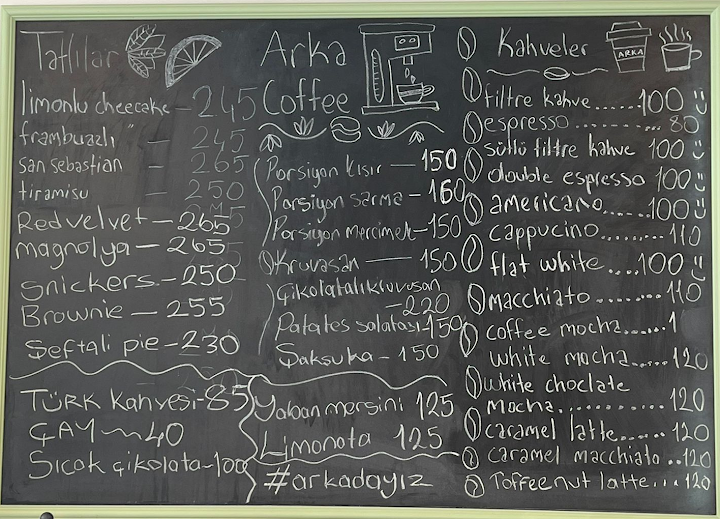 Tatlılar
limonlu cheecake - 245
frambuazlı " - 245
san sebastian - 265
tiramisu - 250
Redvelvet - 265
magnolya - 265
snickers - 250
Brownie - 255
Şeftali pie - 230
TÜRK Kahvesi - 85
ÇAY ~ 40
Sıcak çikolata - 100
Arka
Coffee
Porsiyon kısır - 150
Porsiyon sarma - 160
Porsiyon mercimek - 150
Kruvasan - 150
Çikolatalı kruvasan
- 220
Patates salatası - 150
Şakşuka - 150
Yaban mersini 125
Limonata 125
#arkadayız
Kahveler
ARKA
filtre kahve......100
espresso.........80
sütlü filtre kahve 100
double espresso 100
americano.....100
cappucino.........110
flat white....100
macchiato.......110
coffee mocha.....1
white mocha.....120
white choclate
mocha............120
caramel latte......120
caramel macchiato..120
Toffeenut latte...120